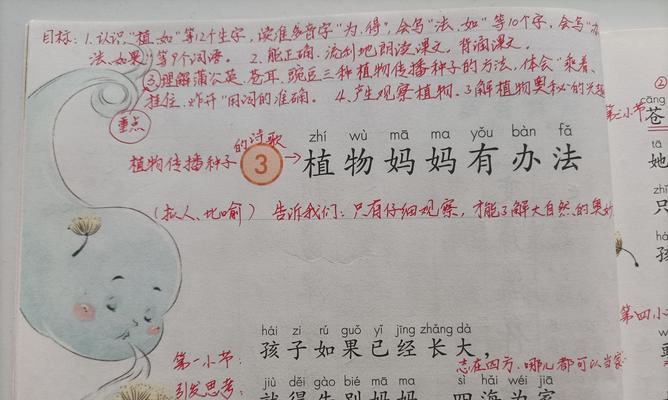 目标：1.认识“植、如”等12个生字，读准多音字“为、得”，会写“法、如”等10个字，会写“办
法、如果”等9个词语。 2.能正确、流利地朗读课文，背诵课文。
③理解蒲公英、苍耳、豌豆三种植物传播种子的方法，体会“乘着、
挂住、炸开”用词的准确。 4.产生观察植物、了解植物奥秘的兴趣
重点
植物传播种子的诗歌
zhí wù mā ma yǒu bàn fǎ
3 植物妈妈有办法
（拟人、比喻） 告诉我们：只有仔细观察，才能了解大自然的奥妙
hái zi rú guǒ yǐ jīng zhǎng dà
第一小节： 孩子如果已经长大，
志在四方，哪儿都可以当家
引发思考：
jiù děi gào bié mā ma sì hǎi wéi jiā
就得告别妈妈 四海为家
②
cāng
苍
她
zhǐ
只
hái
孩
第四小